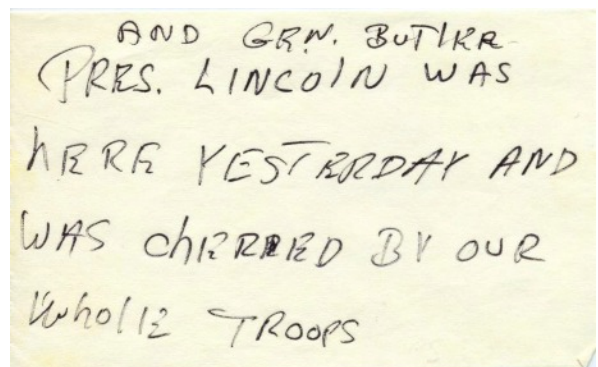 AND GEN. BUTLER
PRES. LINCOLN WAS
HERE YESTERDAY AND
WAS CHEERED BY OUR
WHOLE TROOPS